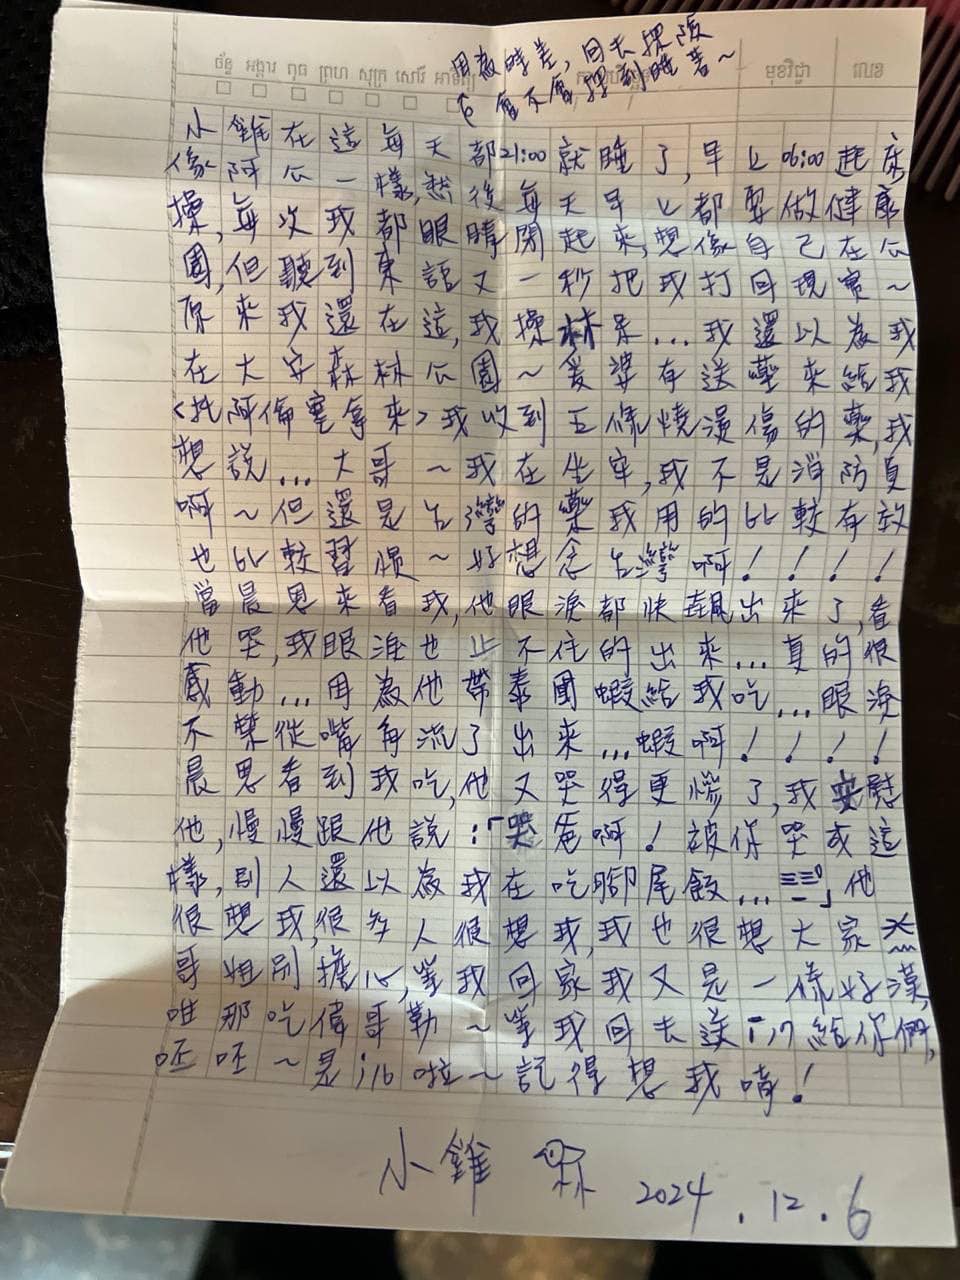 ចន្ទ អង្គារ ពុធ ព្រហ សុក្រ សៅរ៍ អាទិត្យ
មុខវិជ្ជា
លេខ
因為時差,回去探販
會不會踩到睡著~
小雞在這每天都21:00就睡了,早上06:00起床
像阿公一樣,然後每天早上都要做健康
操,每次我都眼睛閉起來,想像自己在公
園,但聽到柬語又一秒把我打回現實~
原來我還在這,我操林呆...我還以為我
在大安森林公園~爰婆有送藥來給我
<托阿倫寄拿來>我收到五條燒燙傷的藥,我
想說...大哥~我在坐牢,我不是消防員
啊~但還是台灣的藥我用的比較有效
也比較習慣~好想念台灣啊!!!!
當晨恩來看我,他眼淚都快飆出來了,看
他哭,我眼淚也止不住的出來...真的很
感動...因為他帶泰國蝦給我吃...眼淚
不禁從嘴角流了出來...蝦啊!!!!
晨恩看到我吃,他又哭得更慘了,我安慰
他,慢慢跟他說:「哭爸啊!被你哭成這
樣,別人還以為我在吃腳尾飯...」他
很想我,很多人很想我,我也很想大家
哥姐別擔心,等我回家我又是一條好漢,
唯那吃偉哥勒~等我回去送i17給你們,
呸呸~是i16啦~記得想我唷!
小雞
2024.12.6